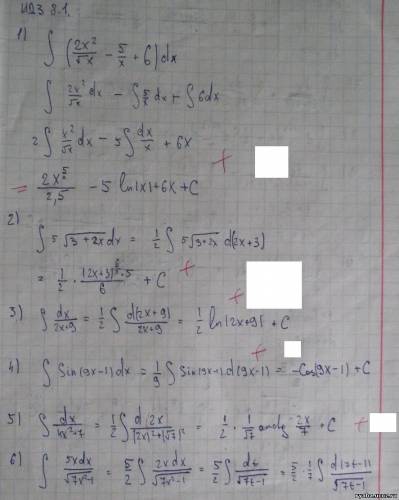 ИДЗ 8.1.
1) ∫ (2x²/√x − 5/x + 6) dx
∫ 2x²/√x dx − ∫ 5/x dx + ∫ 6dx
2 ∫ x²/√x dx − 5 ∫ dx/x + 6x
= 2x^(5/2)/2,5 − 5 ln|x| + 6x + C +
2)
∫ ⁵√(3+2x) dx = 1/2 ∫ ⁵√(3+2x) d(2x+3)
= 1/2 · (2x+3)^(6/5)·5/6 + C +
3) ∫ dx/(2x+9) = 1/2 ∫ d(2x+9)/(2x+9) = 1/2 ln|2x+9| + C +
4) ∫ Sin(9x−1) dx = 1/9 ∫ Sin(9x−1) d(9x−1) = −Cos(9x−1) + C +
5) ∫ dx/(4x²+7) = 1/2 ∫ d(2x)/((2x)²+(√7)²) = 1/2 · 1/√7 arctg 2x/7 + C +
6) ∫ 5xdx/√(7x²−1) = 5/2 ∫ 2xdx/√(7x²−1) = 5/2 ∫ dt/√(7t−1) = 5/2 · 1/7 ∫ d(7t−1)/√(7t−1)